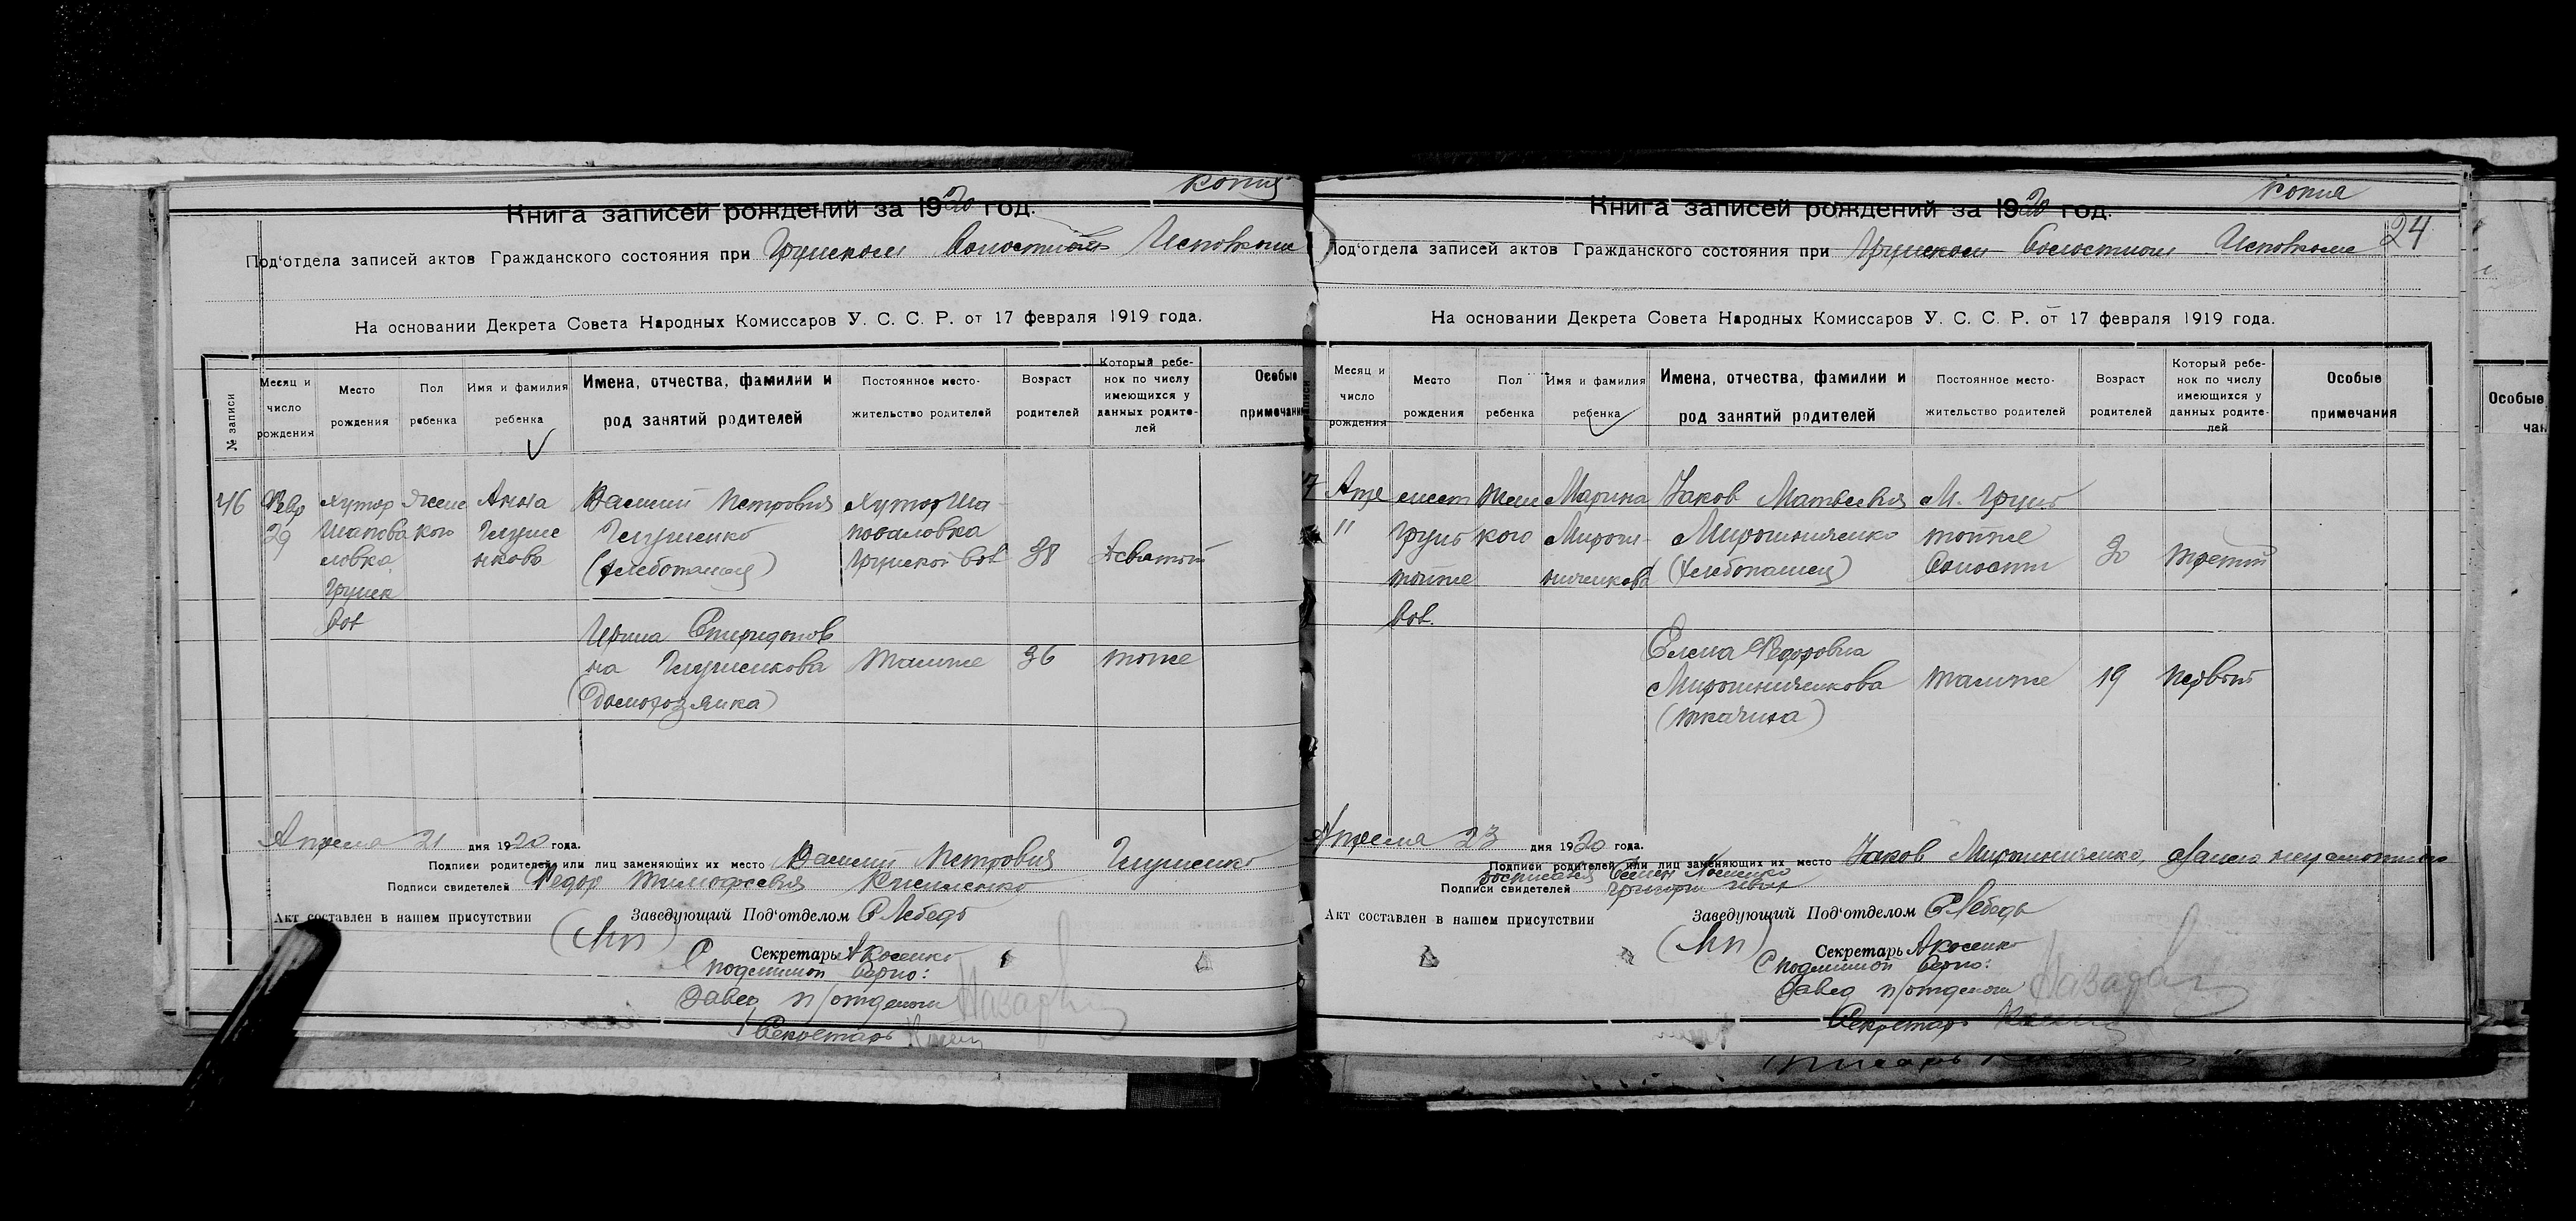 копия
Книга записей рождений за 1920 год.
Под'отдела записей актов Гражданского состояния при Грунском Волостном Исполкоме
На основании Декрета Совета Народных Комиссаров У. С. С. Р. от 17 февраля 1919 года.
№ записи
Месяц и число рождения
Место рождения
Пол ребенка
Имя и фамилия ребенка
Имена, отчества, фамилии и род занятий родителей
Постоянное место-жительство родителей
Возраст родителей
Который ребе-нок по числу имеющихся у данных родите-лей
Особые примечания
46 Февр хутор Женс Анна Василий Петрович хутор Ша-
29 Шапова кого Глуше Глушенко повалловка
ловка нкова (хлебопашец) Грунской вол 38
Грунск
вол
Ирина Спиридонов
на Глушенкова тамже 36 тоже
(домохозяика)
Апреля 21 дня 1920 года.
Подписи родителей или лиц заменяющих их место Василий Петрович Глушенко
Подписи свидетелей Федор Тимофеевич
Акт составлен в нашем присутствии Заведующий Под'отделом С Лебедь
(МП)
Секретарь А Косенко
С подлинным верно:
Завед п/отделом
Секретарь
копия
Книга записей рождений за 1920 год.
24
Под'отдела записей актов Гражданского состояния при Грунском Волостном Исполкоме
На основании Декрета Совета Народных Комиссаров У. С. С. Р. от 17 февраля 1919 года.
Месяц и число рождения
Место рождения
Пол ребенка
Имя и фамилия ребенка
Имена, отчества, фамилии и род занятий родителей
Постоянное место-жительство родителей
Возраст родителей
Который ребе-нок по числу имеющихся у данных родите-лей
Особые примечания
7 Апр мест жен Марина Яков Матвеевич М. Грунь
" Грунь кого Мирош- Мирошниченко тойже
тойже ниченкова (хлебопашец) Волости 30 третий
вол.
Елена Федоровна
Мирошниченкова тамже 19 первый
(ткачиха)
Апреля 23 дня 1920 года.
Подписи родителей или лиц заменяющих их место Яков Мирошниченко,
Подписи свидетелей Григорий
Акт составлен в нашем присутствии Заведующий Под'отделом С Лебедь
(МП)
Секретарь А Косенко
С подлинным верно:
Завед п/отделом
Секретарь
Особые